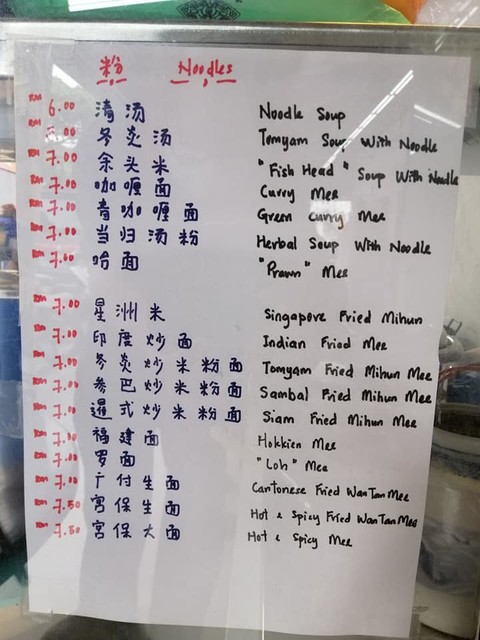 粉 Noodles
RM 6.00 清汤 Noodle Soup
RM .00 冬炎汤 Tomyam Soup With Noodle
RM 7.00 余头米 "Fish Head" Soup With Noodle
RM 7.00 咖喱面 Curry Mee
RM 7.00 青咖喱面 Green Curry Mee
RM 7.00 当归汤粉 Herbal Soup With Noodle
RM 7.00 哈面 "Prawn" Mee
RM 7.00 星洲米 Singapore Fried Mihun
RM 7.00 印度炒面 Indian Fried Mee
RM 7.00 冬炎炒米粉面 Tomyam Fried Mihun Mee
RM 7.00 参巴炒米粉面 Sambal Fried Mihun Mee
RM 7.00 暹式炒米粉面 Siam Fried Mihun Mee
RM 7.00 福建面 Hokkien Mee
RM 7.00 罗面 "Loh" Mee
RM 7.00 广付生面 Cantonese Fried Wan Tan Mee
RM 7.50 宫保生面 Hot & Spicy Fried Wan Tan Mee
RM 7.50 宫保大面 Hot & Spicy Mee